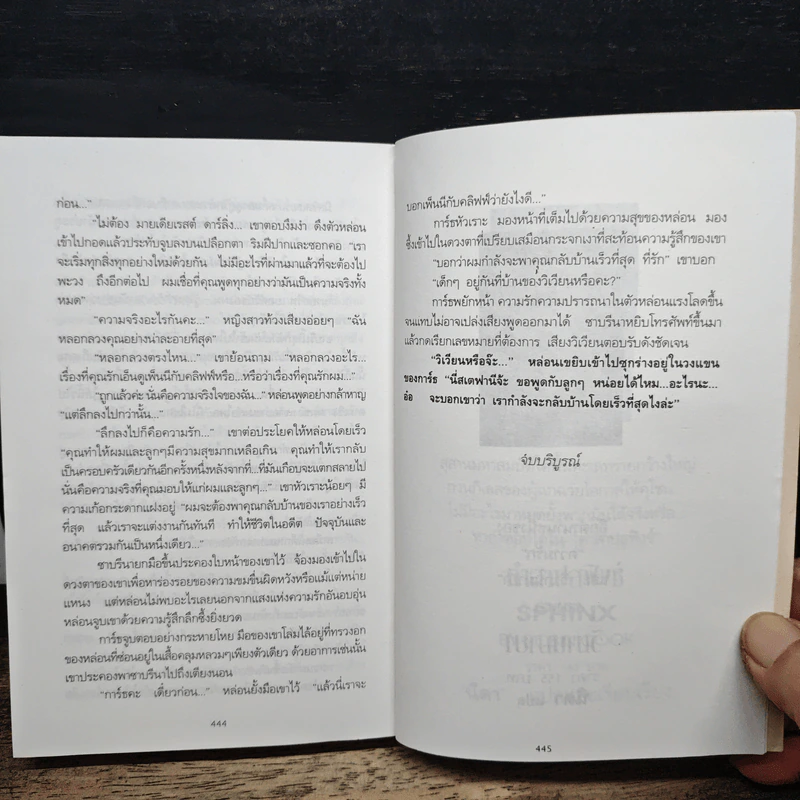 ก่อน..."
"ไม่ต้อง มายเดียเรสต์ ดาร์ลิ่ง... เขาตอบงึมงำ ดึงตัวหล่อน
เข้าไปกอดแล้วประทับจูบลงบนเปลือกตา ริมฝีปากและซอกคอ "เรา
จะเริ่มทุกสิ่งทุกอย่างใหม่ด้วยกัน ไม่มีอะไรที่ผ่านมาแล้วที่จะต้องไป
พะวง ถึงอีกต่อไป ผมเชื่อที่คุณพูดทุกอย่างว่ามันเป็นความจริงทั้ง
หมด"
"ความจริงอะไรกันคะ..." หญิงสาวท้วงเสียงอ่อยๆ "ฉัน
หลอกลวงคุณอย่างน่าละอายที่สุด"
"หลอกลวงตรงไหน..." เขาย้อนถาม "หลอกลวงอะไร...
เรื่องที่คุณรักเอ็นดูเพ็นนีกับคลิฟฟ์หรือ...หรือว่าเรื่องที่คุณรักผม..."
"ถูกแล้วค่ะ นั่นคือความจริงใจของฉัน..." หล่อนพูดอย่างกล้าหาญ
"แต่ลึกลงไปกว่านั้น..."
"ลึกลงไปก็คือความรัก..." เขาต่อประโยคให้หล่อนโดยเร็ว
"คุณทำให้ผมและลูกๆมีความสุขมากเหลือเกิน คุณทำให้เรากลับ
เป็นครอบครัวเดียวกันอีกครั้งหนึ่งหลังจากที่...ที่มันเกือบจะแตกสลายไป
นั่นคือความจริงที่คุณมอบให้แก่ผมและลูกๆ..." เขาหัวเราะน้อยๆ มี
ความเก้อกระดากแฝงอยู่ "ผมจะต้องพาคุณกลับบ้านของเราอย่างเร็ว
ที่สุด แล้วเราจะแต่งงานกันทันที ทำให้ชีวิตในอดีต ปัจจุบันและ
อนาคตรวมกันเป็นหนึ่งเดียว..."
ซาบรีนายกมือขึ้นประคองใบหน้าของเขาไว้ จ้องมองเข้าไปใน
ดวงตาของเขาเพื่อหาร่องรอยของความขมขื่นผิดหวังหรือแม้แต่หน่าย
แหนง แต่หล่อนไม่พบอะไรเลยนอกจากแสงแห่งความรักอันอบอุ่น
หล่อนจูบเขาด้วยความรู้สึกลึกซึ้งยิ่งยวด
การ์ธจูบตอบอย่างกระหายโหย มือของเขาโลมไล้อยู่ที่ทรวงอก
ของหล่อนที่ซ่อนอยู่ในเสื้อคลุมหลวมๆเพียงตัวเดียว ด้วยอาการเช่นนั้น
เขาประคองพาซาบรีนาไปถึงเตียงนอน
"การ์ธคะ เดี๋ยวก่อน..." หล่อนยั้งมือเขาไว้ "แล้วนี่เราจะ
444
บอกเพ็นนีกับคลิฟฟ์ว่ายังไงดี..."
การ์ธหัวเราะ มองหน้าที่เต็มไปด้วยความสุขของหล่อน มอง
ซึ้งเข้าไปในดวงตาที่เปรียบเสมือนกระจกเงาที่สะท้อนความรู้สึกของเขา
"บอกว่าผมกำลังจะพาคุณกลับบ้านเร็วที่สุด ที่รัก" เขาบอก
"เด็กๆ อยู่กันที่บ้านของวิเวียนหรือคะ?"
การ์ธพยักหน้า ความรักความปรารถนาในตัวหล่อนแรงโลดขึ้น
จนแทบไม่อาจเปล่งเสียงพูดออกมาได้ ซาบรีนาหยิบโทรศัพท์ขึ้นมา
แล้วกดเรียกเลขหมายที่ต้องการ เสียงวิเวียนตอบรับดังชัดเจน
"วิเวียนหรือจ๊ะ..." หล่อนเขยิบเข้าไปซุกร่างอยู่ในวงแขน
ของการ์ธ "นี่สเตฟานีจ้ะ ขอพูดกับลูกๆ หน่อยได้ไหม...อะไรนะ...
อ๋อ จะบอกเขาว่า เรากำลังจะกลับบ้านโดยเร็วที่สุดไงล่ะ"
จบบริบูรณ์
445